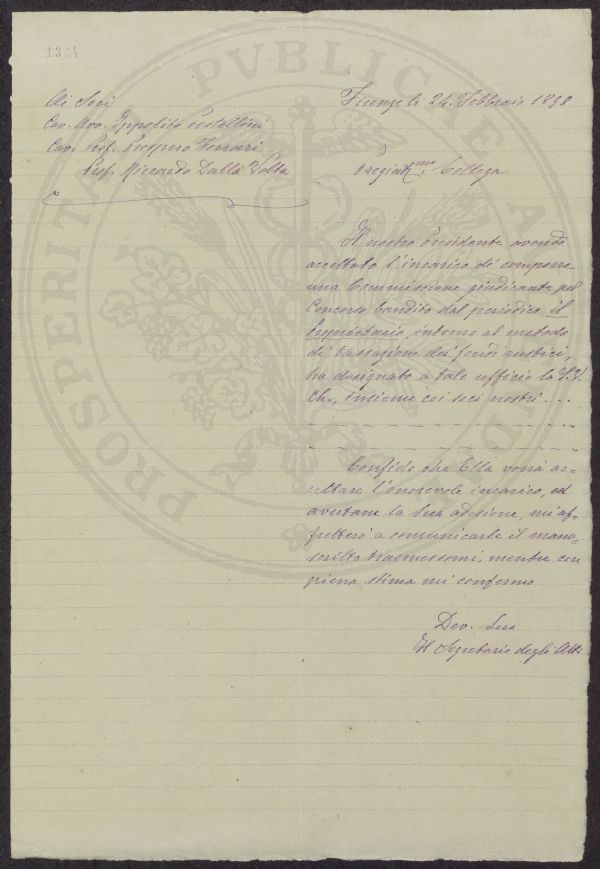 1304
Ai Soci
Cav. Avv. Ippolito Pestellini
Cav. Prof. Prospero Ferrari
Prof. Riccardo Dalla Volta
Firenze li 24. Febbraio 1898
Pregiatmo. Collega
Il nostro Presidente, avendo
accettato l'incarico di comporre
una Commissione giudicante pel
Concorso bandito dal periodico il
Proprietario, intorno al metodo
di tassazione dei fondi rustici,
ha designato a tale ufficio la S.V.
Ch., insieme coi soci nostri ...
Confido che Ella vorrà ac-
cettare l'onorevole incarico, ed
avutane la Sua adesione, mi af-
fretterò a comunicarle il mano-
scritto trasmessomi, mentre con
piena stima mi confermo
Dev. Suo
Il Segretario degli Atti
PROSPERITATI PVBLICAE AV